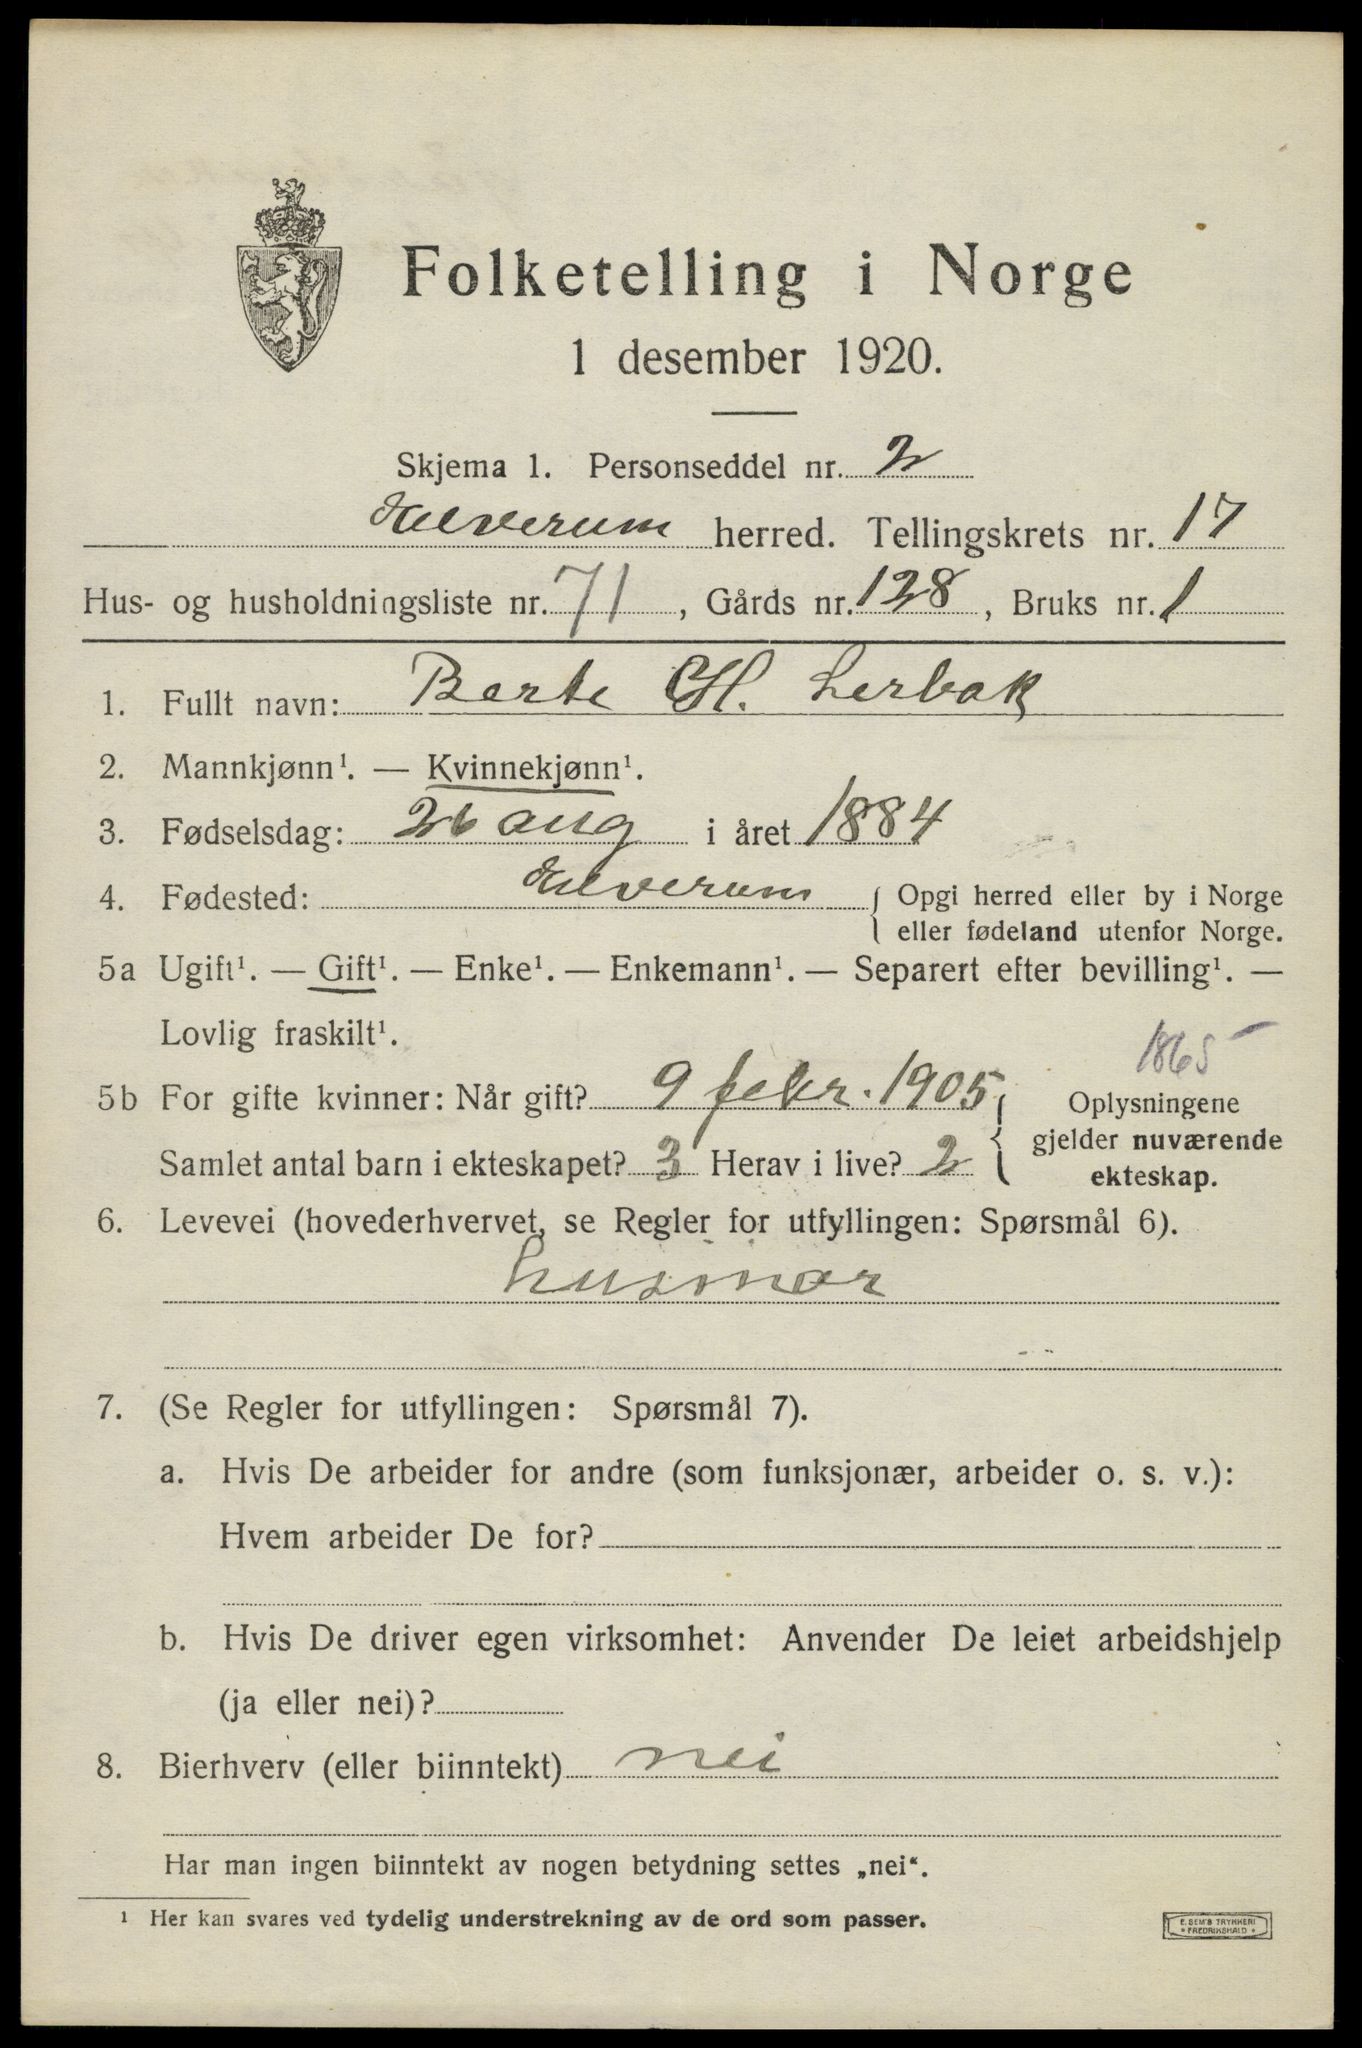 Folketelling i Norge
1 desember 1920.
Skjema 1. Personseddel nr. 2
Elverum herred. Tellingskrets nr. 17
Hus- og husholdningsliste nr. 71, Gårds nr. 128, Bruks nr. 1
1. Fullt navn: Berte H. Lerbak
2. Mannkjønn¹. — Kvinnekjønn¹.
3. Fødselsdag: 26 aug i året 1884
4. Fødested: Elverum { Opgi herred eller by i Norge
eller fødeland utenfor Norge.
5a Ugift¹. — Gift¹. — Enke¹. — Enkemann¹. — Separert efter bevilling¹. —
Lovlig fraskilt¹.
1865
5b For gifte kvinner: Når gift? 9 febr. 1905 { Oplysningene
gjelder nuværende
Samlet antal barn i ekteskapet? 3 Herav i live? 2 ekteskap.
6. Levevei (hovederhvervet, se Regler for utfyllingen: Spørsmål 6).
husmor
7. (Se Regler for utfyllingen: Spørsmål 7).
a. Hvis De arbeider for andre (som funksjonær, arbeider o. s. v.):
Hvem arbeider De for?
b. Hvis De driver egen virksomhet: Anvender De leiet arbeidshjelp
(ja eller nei)?
8. Bierhverv (eller biinntekt) nei
Har man ingen biinntekt av nogen betydning settes „nei“.
¹ Her kan svares ved tydelig understrekning av de ord som passer.
E. SEM'S TRYKKERI
* FREDRIKSHALD *